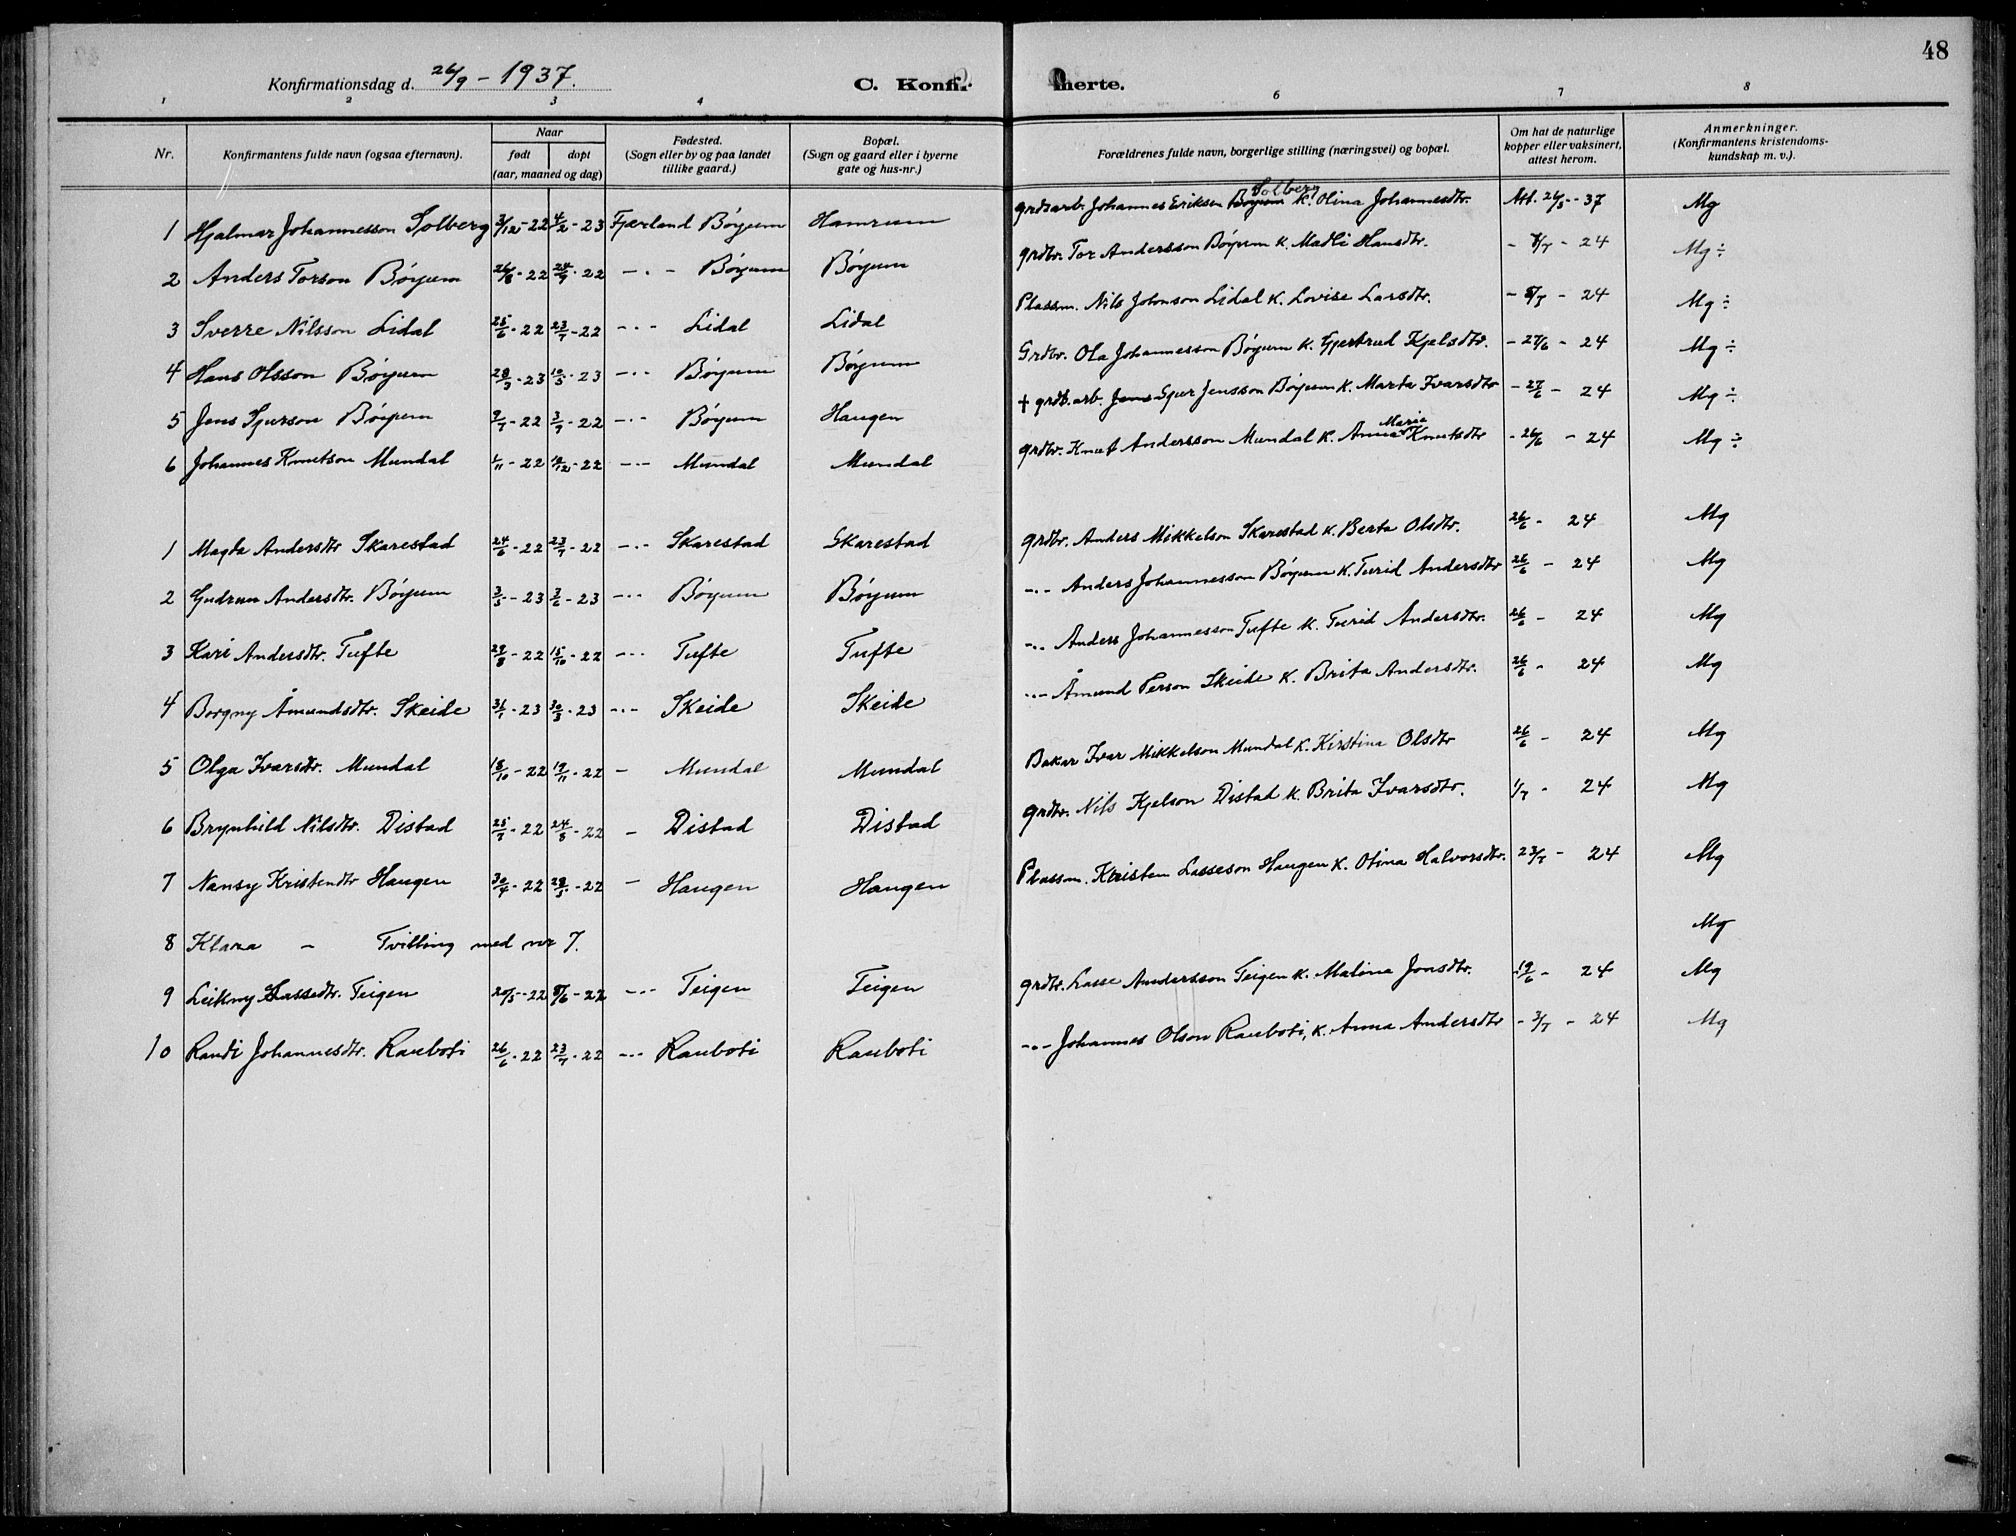 48
Konfirmationsdag d. 26/9 - 1937.
C. Konfirmerte.
1 2 3 4 6 7 8
Nr. Konfirmantens fulde navn (ogsaa efternavn). Naar født døpt (aar, maaned og dag) Fødested. (Sogn eller by og paa landet tillike gaard.) Bopæl. (Sogn og gaard eller i byerne gate og hus-nr.) Forældrenes fulde navn, borgerlige stilling (næringsvei) og bopæl. Om hat de naturlige kopper eller vaksinert, attest herom. Anmerkninger. (Konfirmantens kristendomskundskap m. v.).
1 Hjalmar Johannesson Solberg 3/12 - 22 4/2 - 23 Fjærland Bøyum Hamrum grdsarb. Johannes Eriksen Solberg K. Olina Johannesdtr. Att. 26/5 - 37 Mg
2 Anders Torson Bøyum 26/8 - 22 24/9 - 22 -"- Bøyum Bøyum grdbr. Tor Andersson Bøyum K. Madli Hansdtr. - 24 Mg ÷
3 Sverre Nilsson Lidal 25/6 - 22 23/7 - 22 -"- Lidal Lidal Plassm. Nils Johnson Lidal K. Lovise Larsdtr. - 24 Mg ÷
4 Hans Olsson Bøyum 28/3 - 23 10/5 - 23 -"- Bøyum Bøyum Grdbr. Ola Johannesson Bøyum K. Gjertrud Kjelsdtr. - 27/6 - 24 Mg ÷
5 Jens Sjurson Bøyum 9/7 - 22 3/9 - 22 -"- Bøyum Haugen † grdb.arb. Jens Sjur Jensson Bøyum K. Marta Ivarsdtr - 27/6 - 24 Mg ÷
6 Johannes Knutson Mundal 1/11 - 22 10/12 - 22 -"- Mundal Mundal grdbr. Knut Andersson Mundal K. Anna Marie Knutsdtr - 26/6 - 24 Mg ÷
1 Magda Andersdtr Skarestad 24/6 - 22 23/7 - 22 -"- Skarestad Skarestad grdbr. Anders Mikkelson Skarestad K. Berta Olsdtr. 26/6 - 24 Mg
2 Gudrun Andersdtr. Bøyum 3/5 - 23 3/6 - 23 -"- Bøyum Bøyum -"- Anders Johannesson Bøyum K. Turid Andersdtr 26/6 - 24 Mg
3 Kari Andersdtr. Tufte 29/8 - 22 15/10 - 22 -"- Tufte Tufte -"- Anders Johannesson Tufte K. Turid Andersdtr. 26/6 - 24 Mg
4 Borgny Åmundsdtr. Skeide 31/1 - 23 30/3 - 23 -"- Skeide Skeide -"- Åmund Person Skeide K. Brita Andersdtr. 26/6 - 24 Mg
5 Olga Ivarsdtr. Mundal 18/10 - 22 19/11 - 22 - Mundal Mundal Bakar Ivar Mikkelson Mundal K. Kirstina Olsdtr 26/6 - 24 Mg
6 Brynhild Nilsdtr. Distad 25/7 - 22 24/8 - 22 - Distad Distad grdbr. Nils Kjelson Distad K. Brita Ivarsdtr. 1/7 - 24 Mg
7 Nansy Kristendtr Haugen 30/4 - 22 28/5 - 22 - Haugen Haugen Plassm. Kristen Lasseson Haugen K. Otina Halvorsdtr. 23/7 - 24 Mg
8 Klara - Tvilling med nr 7. Mg
9 Leikny Lassedtr. Teigen 20/5 - 22 5/6 - 22 -"- Teigen Teigen grdbr. Lasse Andersson Teigen K. Malina Jonsdtr. 19/6 - 24 Mg
10 Randi Johannesdtr. Rauboti 26/6 - 22 23/7 - 22 -"- Rauboti Rauboti -"- Johannes Olson Rauboti, K. Anna Andersdtr - 3/7 - 24 Mg